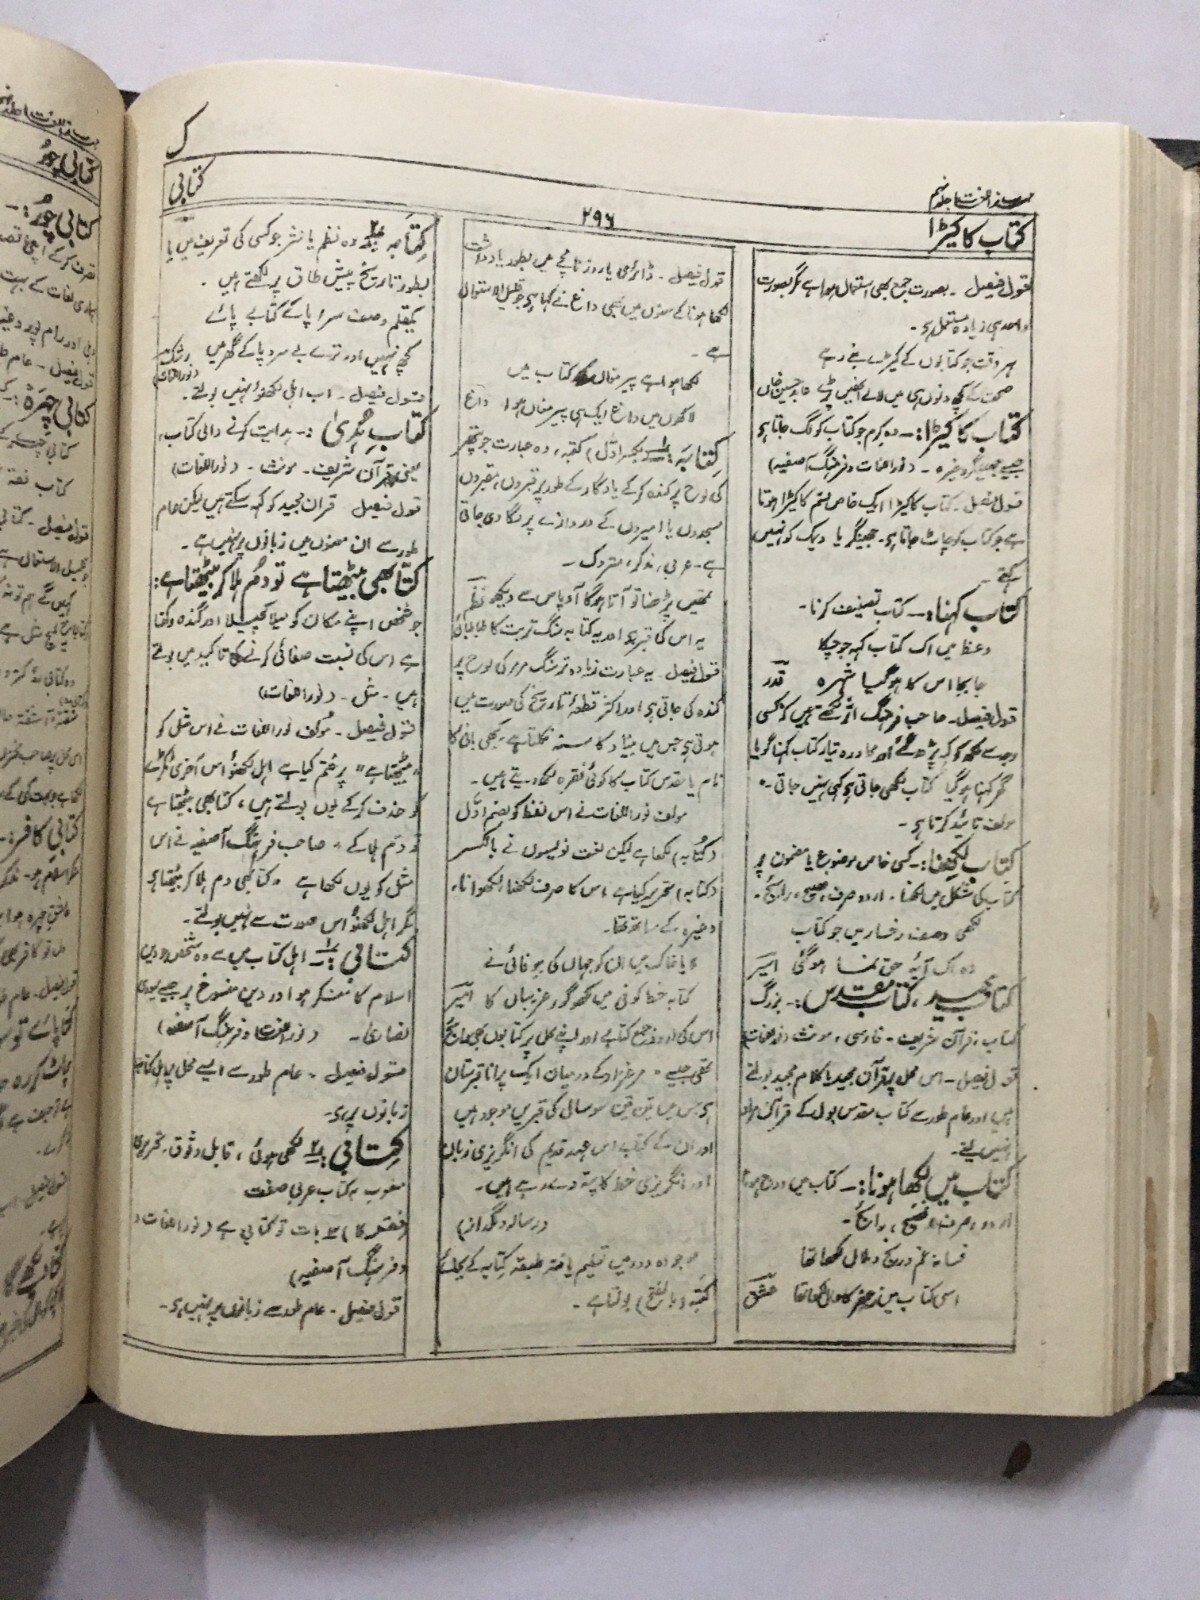 ک
مہذب اللغات جلد نہم
۲۹۶
کتاب کا کیڑا
کتابی
قول فیصل ۔ بصورت جمع بھی استعمال ہوا ہے مگر بصورت
واحد ہی زیادہ مستعمل ہے۔
ہر وقت جو کتابوں کے کیڑے بنے رہے
صحت کے کچھ دنوں ہی میں لالے انھیں پڑے
کتاب کا کیڑا :۔ وہ کرم جو کتاب کو لگ جاتا ہو
جیسے جھینگر وغیرہ ۔ (نور اللغات و فرہنگ آصفیہ)
قول فیصل ۔ کتاب کا کیڑا ایک خاص قسم کا کیڑا ہوتا
ہے جو کتاب کو چاٹ جاتا ہو۔ جھینگر یا دیمک کو نہیں
کہتے ۔
کتاب کہنا :۔ کتاب تصنیف کرنا۔
وعظ میں اک کتاب کہہ جو چکا
جا بجا اس کا ہو گیا شہرہ قدر
قول فیصل ۔ صاحب فرہنگ اثر لکھتے ہیں کہ کسی
وجہ سے لکھ کو کہہ پڑھ گئے اور محاورہ تیار کتاب کہنا گویا
گھر کہنا ہو گیا کتاب لکھی جاتی ہو کہی نہیں جاتی ۔"
مولف تائید کرتا ہو ۔
کتاب لکھنا :۔ کسی خاص موضوع یا مضمون پر
کتاب کی شکل میں لکھنا ۔ اردو صرف، فصیح، رائج ۔
لکھی وصف رخسار میں جو کتاب
وہ اک آیۂ حق نما ہو گئی امیر
کتاب مجید، کتاب مقدس :۔ بزرگ
کتاب، قرآن شریف ۔ فارسی، مونث (نور اللغات)
قول فیصل ۔ اس محل پر قرآن مجید یا کلام مجید بولتے
ہیں اور عام طور سے کتاب مقدس بول کے قرآن مراد
نہیں لیتے۔
کتاب میں لکھا ہونا :۔ کتاب میں درج ہونا
اردو، صرف، فصیح، رائج ۔
فسانۂ غم و رنج و ملال لکھا تھا
اسی کتاب میں کا حال لکھا تھا عشق
قول فیصل ۔ ڈائری یا روزنامچے میں بطور یادداشت
لکھا ہونا کے معنوں میں بھی داغ نے کہا ہو جو قلیل الاستعمال
ہے ۔
لکھا ہوا ہے پیر مغاں کی کتاب میں
لاکھوں میں داغ ایک ہی پیر مغاں ہوا داغ
کتابہ :۔ ۱ (بکسر اول) کتبہ، وہ عبارت جو پتھر
کی لوح پر کندہ کر کے یادگار کے طور پر قبروں، مقبروں
مسجدوں یا امیروں کے دروازے پر لگا دی جاتی
ہے ۔ عربی، مذکر، متروک ۔
تمھیں پڑھنا تو آتا ہوگا آؤ پاس سے دیکھو نظم
یہ اس کی قبر ہو اور یہ کتابہ سنگ تربت کا طباطبائی
قول فیصل ۔ یہ عبارت زیادہ تر سنگ مرمر کی لوح پر
کندہ کی جاتی ہو اور اکثر قطعۂ تاریخ کی صورت میں
ہوتی ہو جس میں بنیاد کا سنہ نکلتا ہے کبھی بانی کا
نام یا مقدس کتاب کا کوئی فقرہ لکھ دیتے ہیں ۔
مولف نور اللغات نے اس لفظ کو بضم اول
(کُتابہ) لکھا ہے لیکن لغت نویسوں نے بالکسر
(کتابہ) تحریر کیا ہے، اس کا صرف لکھنا، لکھوانا،
وغیرہ کے ساتھ تھا۔
یا خاک میں ان کو جہاں کی بے وفائی نے
کتابہ خط کوفی میں لکھ گور غریباں کا امیر
اس کی اردو جمع کتابے اور اپنے محل پر کتابوں بھی رائج
تھی جیسے، مرغزار کے درمیان ایک پرانا قبرستان
ہو جس میں تین تین سو سال کی قبریں موجود ہیں
اور ان کے کتبے اس عہد قدیم کی انگریزی زبان
اور انگریزی خط کا پتہ دے رہے ہیں ۔
(رسالہ دلگداز)
موجودہ دور میں تعلیم یافتہ طبقہ کتابہ کے بجائے
کتبہ (بالفتح) بولتا ہے ۔
کتابہ :۔ ۲ وہ نظم یا نثر جو کسی کی تعریف میں یا
بطور تاریخ پیش طاق پر لکھتے ہیں ۔
یکقلم وصف سراپا کے کتابے پائے
کچھ نہیں اور ترے بے سروپا کے گھر میں رشک
(نور اللغات)
قول فیصل ۔ اب اہل لکھنؤ نہیں بولتے ۔
کتاب ہدیٰ :۔ ہدایت کرنے والی کتاب،
یعنی قرآن شریف ۔ مونث ۔ (نور اللغات)
قول فیصل قرآن مجید کو کہہ سکتے ہیں لیکن عام
طور سے ان معنوں میں زبانوں پر نہیں ہے ۔
کتا بھی بیٹھتا ہے تو دم ہلا کر بیٹھتا ہے :
جو شخص اپنے مکان کو میلا کچیلا اور گندہ رکھتا
ہے اس کی نسبت صفائی کرنے کی تاکید میں بولتے
ہیں ۔ مثل ۔ (نور اللغات)
قول فیصل ۔ مولف نور اللغات نے اس مثل کو
"بیٹھتا ہے" پر ختم کیا ہے اہل لکھنؤ اس آخری ٹکڑے
کو حذف کر کے یوں بولتے ہیں، کتا بھی بیٹھتا ہے
تو دم ہلا کے ۔ صاحب فرہنگ آصفیہ نے اس
مثل کو یوں لکھا ہے ۔ کتا بھی دم ہلا کر بیٹھتا ہو
مگر اہل لکھنؤ اس صورت سے نہیں بولتے ۔
کتابی :۔ ۱ اہل کتاب میں سے وہ شخص جو دین
اسلام کا منکر ہو اور دین منسوخ پر جیسے یہودی
نصاریٰ ۔ (نور اللغات و فرہنگ آصفیہ)
قول فیصل ۔ عام طور سے ایسے محل پر اہل کتاب
زبانوں پر ہو ۔
کتابی :۔ ۲ لکھی ہوئی، قابل وثوق، تحریری
منسوب بہ کتاب عربی صفت
(فقرہ) یہ بات تو کتابی ہے (نور اللغات
و فرہنگ آصفیہ)
قول فیصل ۔ عام طور سے زبانوں پر نہیں ہو ۔
کتابی چور
کتابی چور :۔
کتابی چہرہ :۔
کتابی کافر :۔